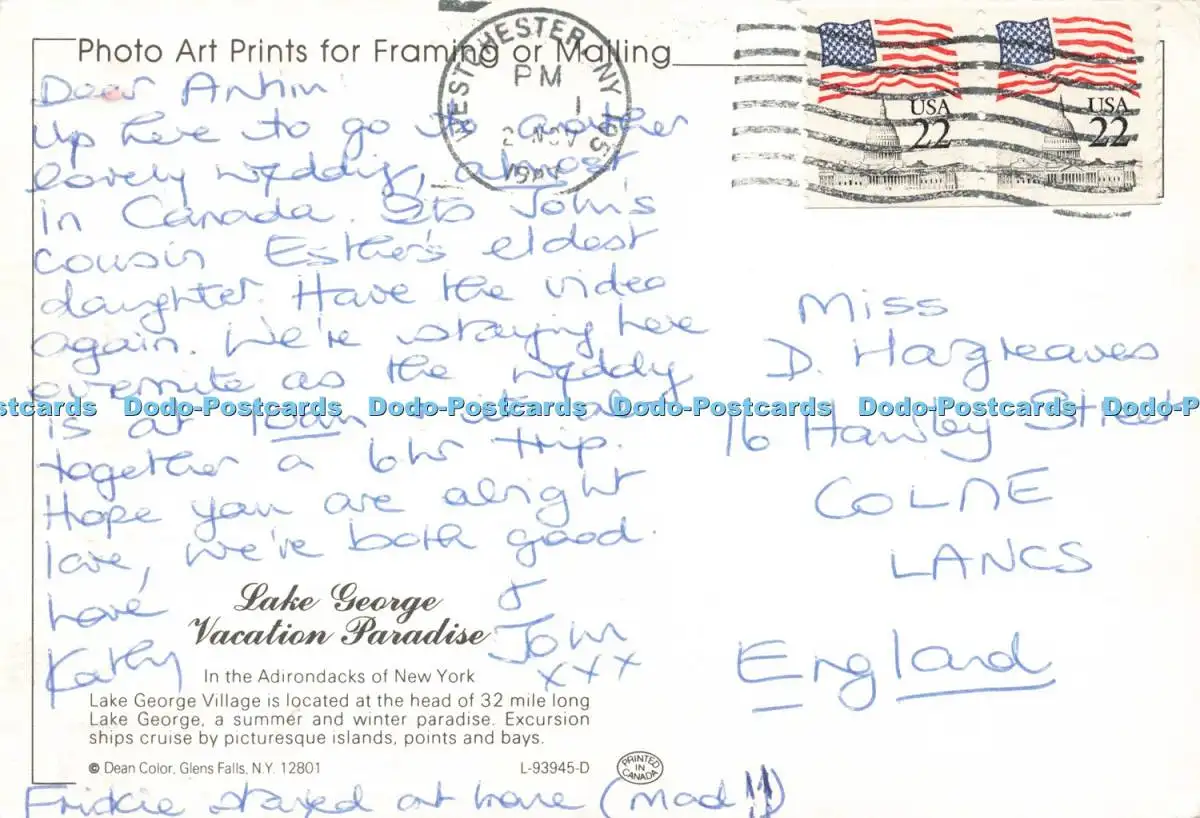 Photo Art Prints for Framing or Mailing
WESTCHESTER, NY
PM
1
NOV
USA
22
USA
22
Dear
Up here to go to another
lovely wedding, almost
in Canada. Its John's
cousin Esther's eldest
daughter. Have the video
again. We're staying here
overnite as the wedding
is at 10am
together a 6hr trip.
Hope you are alright
love, we're both good.
Love &
Kathy John
xxx
Miss
D. Hargreaves
16 Hawley Street
COLNE
LANCS
England
Dodo-Postcards Dodo-Postcards Dodo-Postcards Dodo-Postcards
Lake George
Vacation Paradise
In the Adirondacks of New York
Lake George Village is located at the head of 32 mile long
Lake George, a summer and winter paradise. Excursion
ships cruise by picturesque islands, points and bays.
© Dean Color, Glens Falls, N.Y. 12801 L-93945-D
PRINTED
IN
CANADA
stayed at home (mad!!)